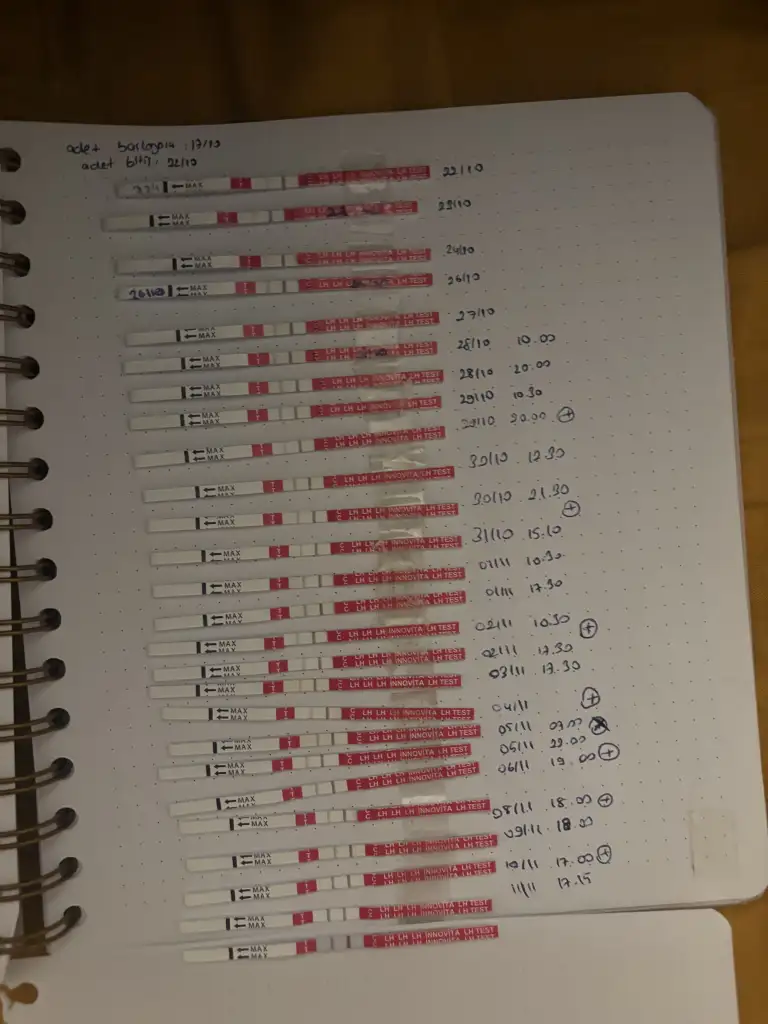 adet başlangıcı : 17/10
adet bitiş : 22/10
MAX LH LH LH INNOVITA LH TEST 22/10
MAX LH TEST 23/10
MAX LH LH LH INNOVITA LH TEST 24/10
26/10 MAX LH LH LH TEST 26/10
MAX LH LH LH INNOVITA LH TEST 27/10
MAX LH TEST 28/10 10.00
MAX LH LH LH INNOVITA LH TEST 28/10 20.00
MAX LH LH LH INNOVITA LH TEST 29/10 10.30
MAX LH LH LH INNOVITA LH TEST 29/10 20.00 +
MAX LH LH LH INNOVITA LH TEST 30/10 12.30
MAX LH LH LH INNOVITA LH TEST 30/10 21.30
+
MAX LH LH LH INNOVITA LH TEST 31/10 15.10
MAX LH LH LH INNOVITA LH TEST 01/11 10.30
MAX LH LH LH INNOVITA LH TEST 01/11 17.30
MAX LH LH LH INNOVITA LH TEST 02/11 10.30 +
MAX LH LH LH INNOVITA LH TEST 02/11 17.30
MAX LH LH LH INNOVITA LH TEST 03/11 17.30
MAX LH LH LH INNOVITA LH TEST 04/11 +
MAX LH LH LH INNOVITA LH TEST 05/11
MAX LH LH LH INNOVITA LH TEST 05/11 22.00
MAX LH LH LH INNOVITA LH TEST 06/11 19.00 +
MAX LH LH LH INNOVITA LH TEST 08/11 18.00 +
MAX LH LH LH INNOVITA LH TEST 09/11 18.00
MAX LH LH LH INNOVITA LH TEST 10/11 17.00 +
MAX LH LH LH INNOVITA LH TEST 11/11 17.15
MAX LH LH LH INNOVITA LH TEST